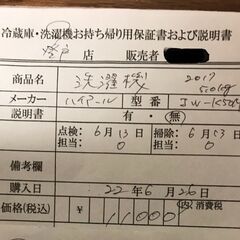 冷蔵庫・洗濯機お持ち帰り用保証書および説明書
店 販売者
商品名 洗濯機 2017 5.0kg
メーカー ハイアール 型番 JW-K50
説明書 有 ・ 無
点検: 6月13日 清掃: 6月13日
担当: 担当:
備考欄
購入日 22年 6月 26日
価格(税込) ¥ 11000 内 消費税